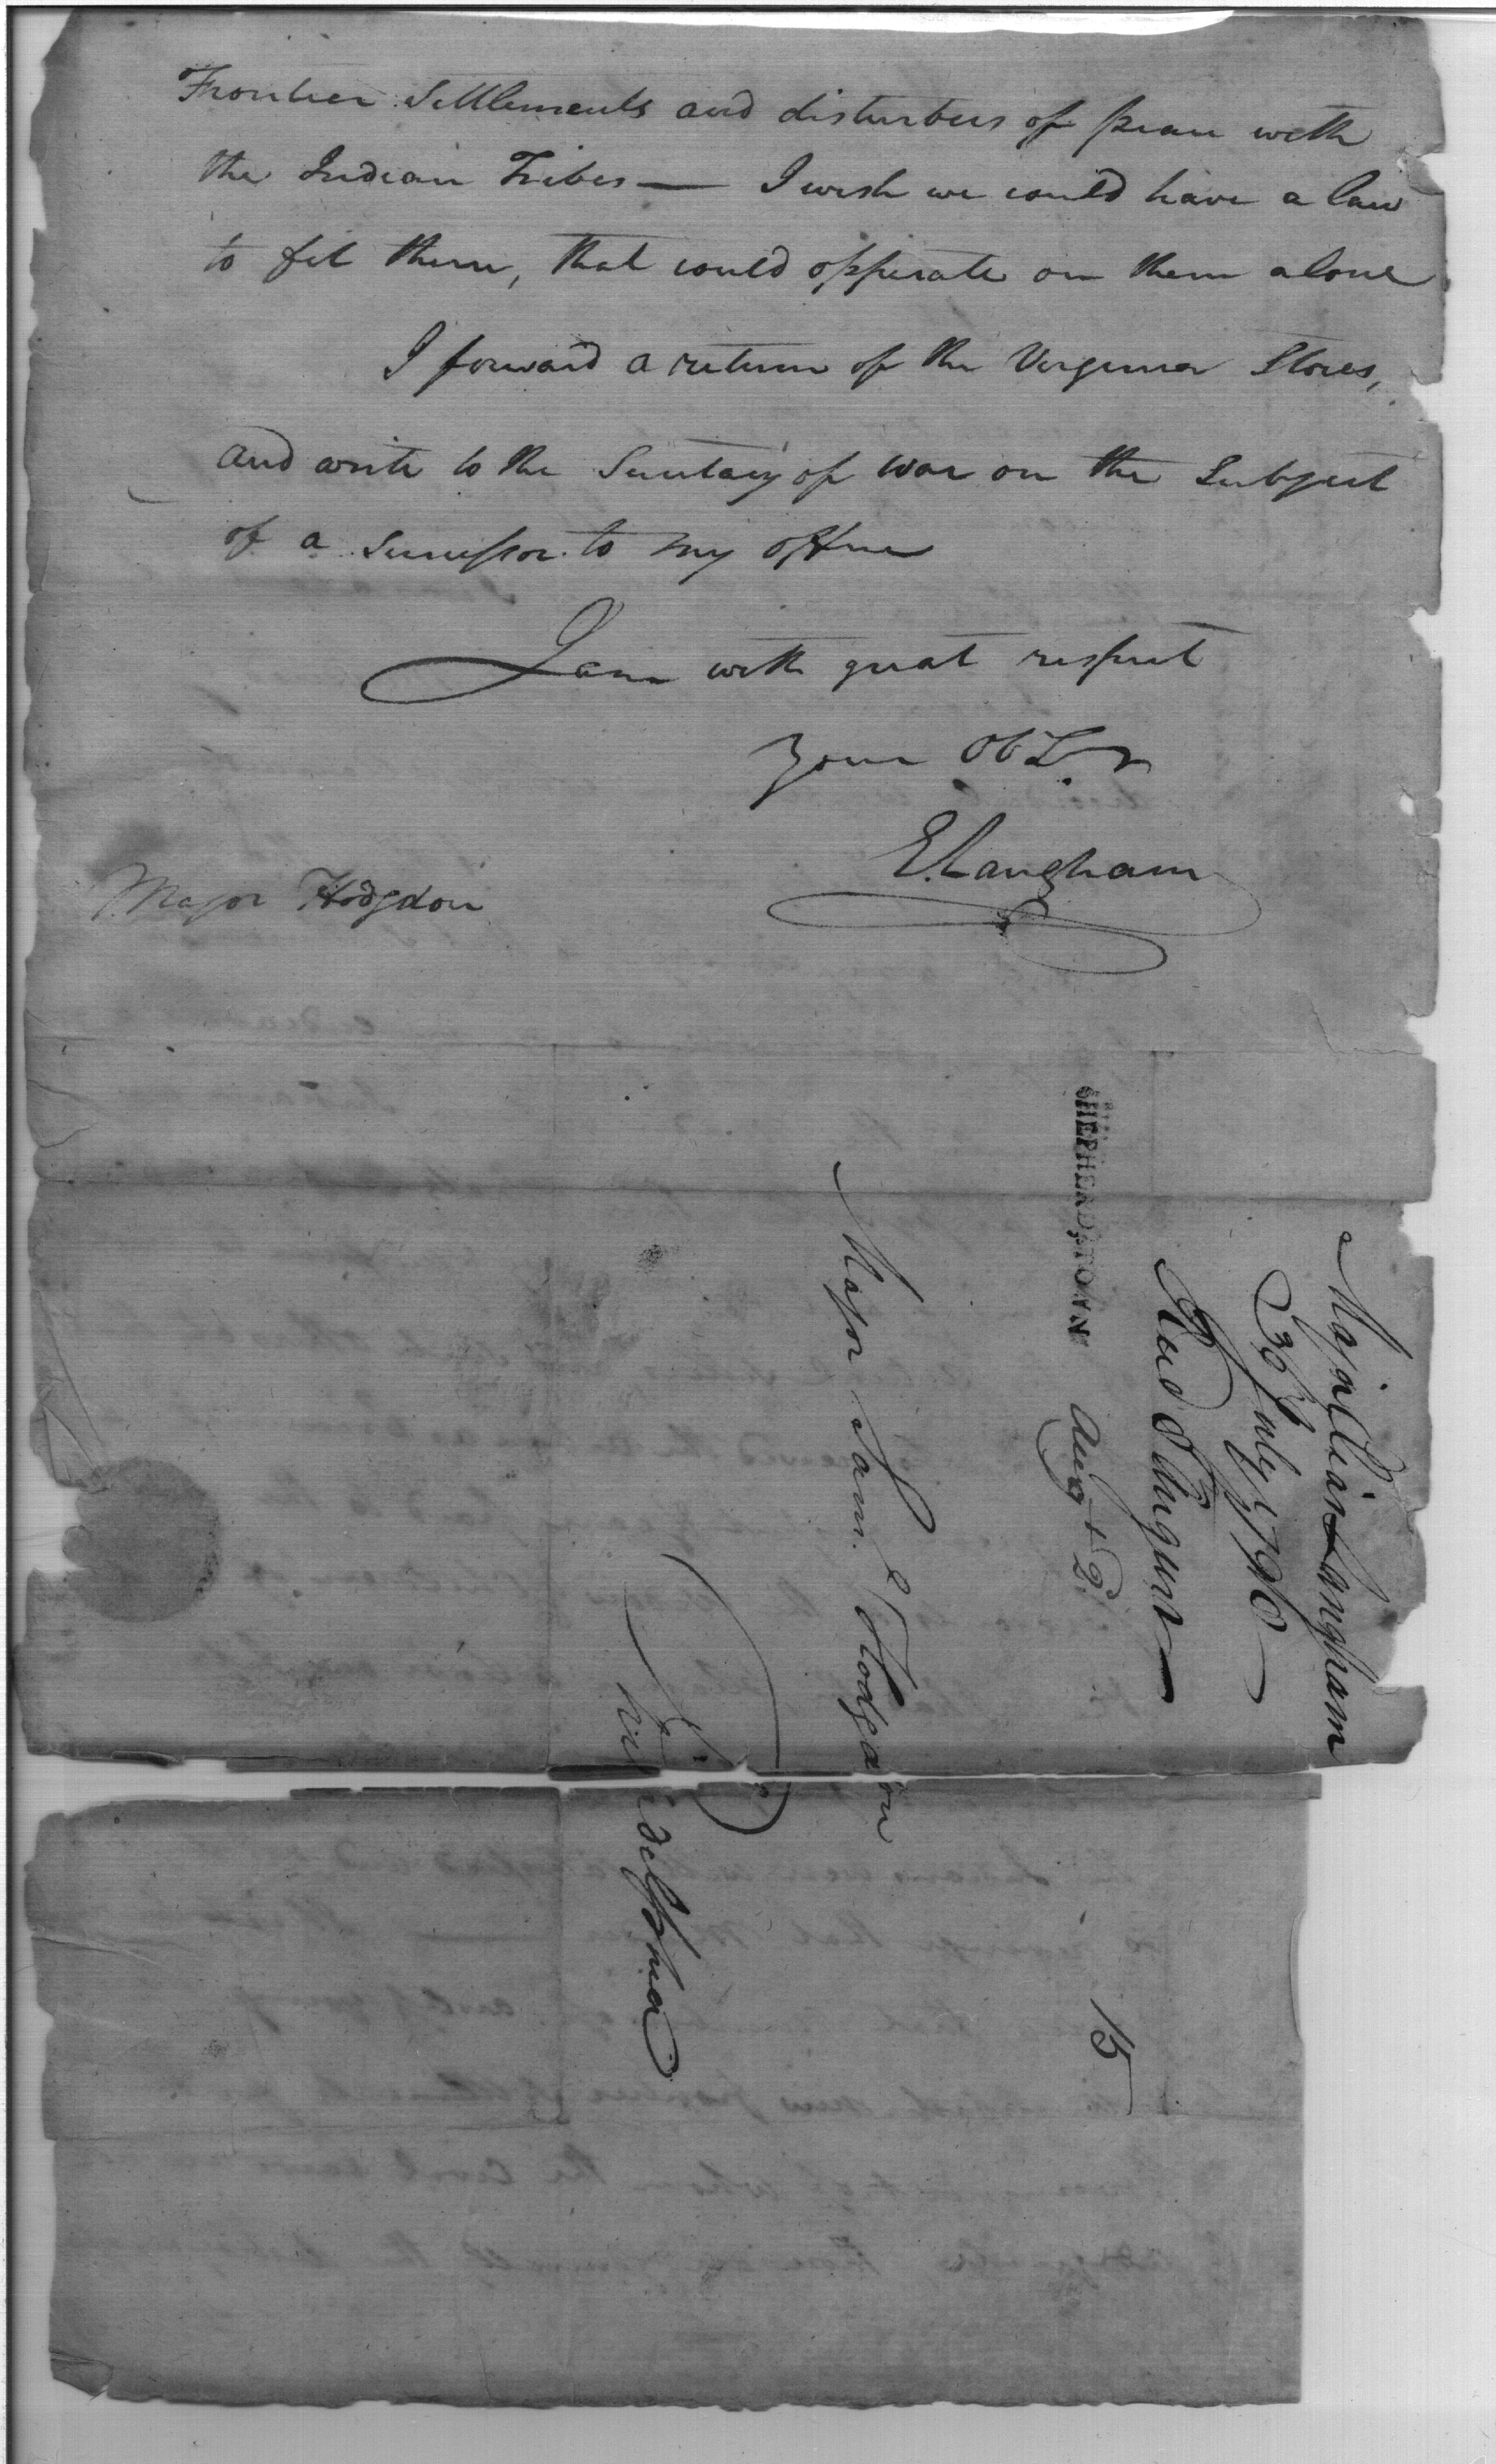 Frontier Settlements and disturbers of peace with
the Indian Tribes — I wish we could have a law
to fit them, that could opperate on them alone
I forward a return of the Virginia Stores,
and write to the Secretary of War on the Subject
of a Successor to my office
I am with great respect
Your Ob S.r
E. Langham
Major Hodgdon
Major Saml. Hodgdon
Philadelphia
SHEPHERDSTOWN
Augt 2d
15
Major Elias Langham
30 July 1796
Recd 8 August —